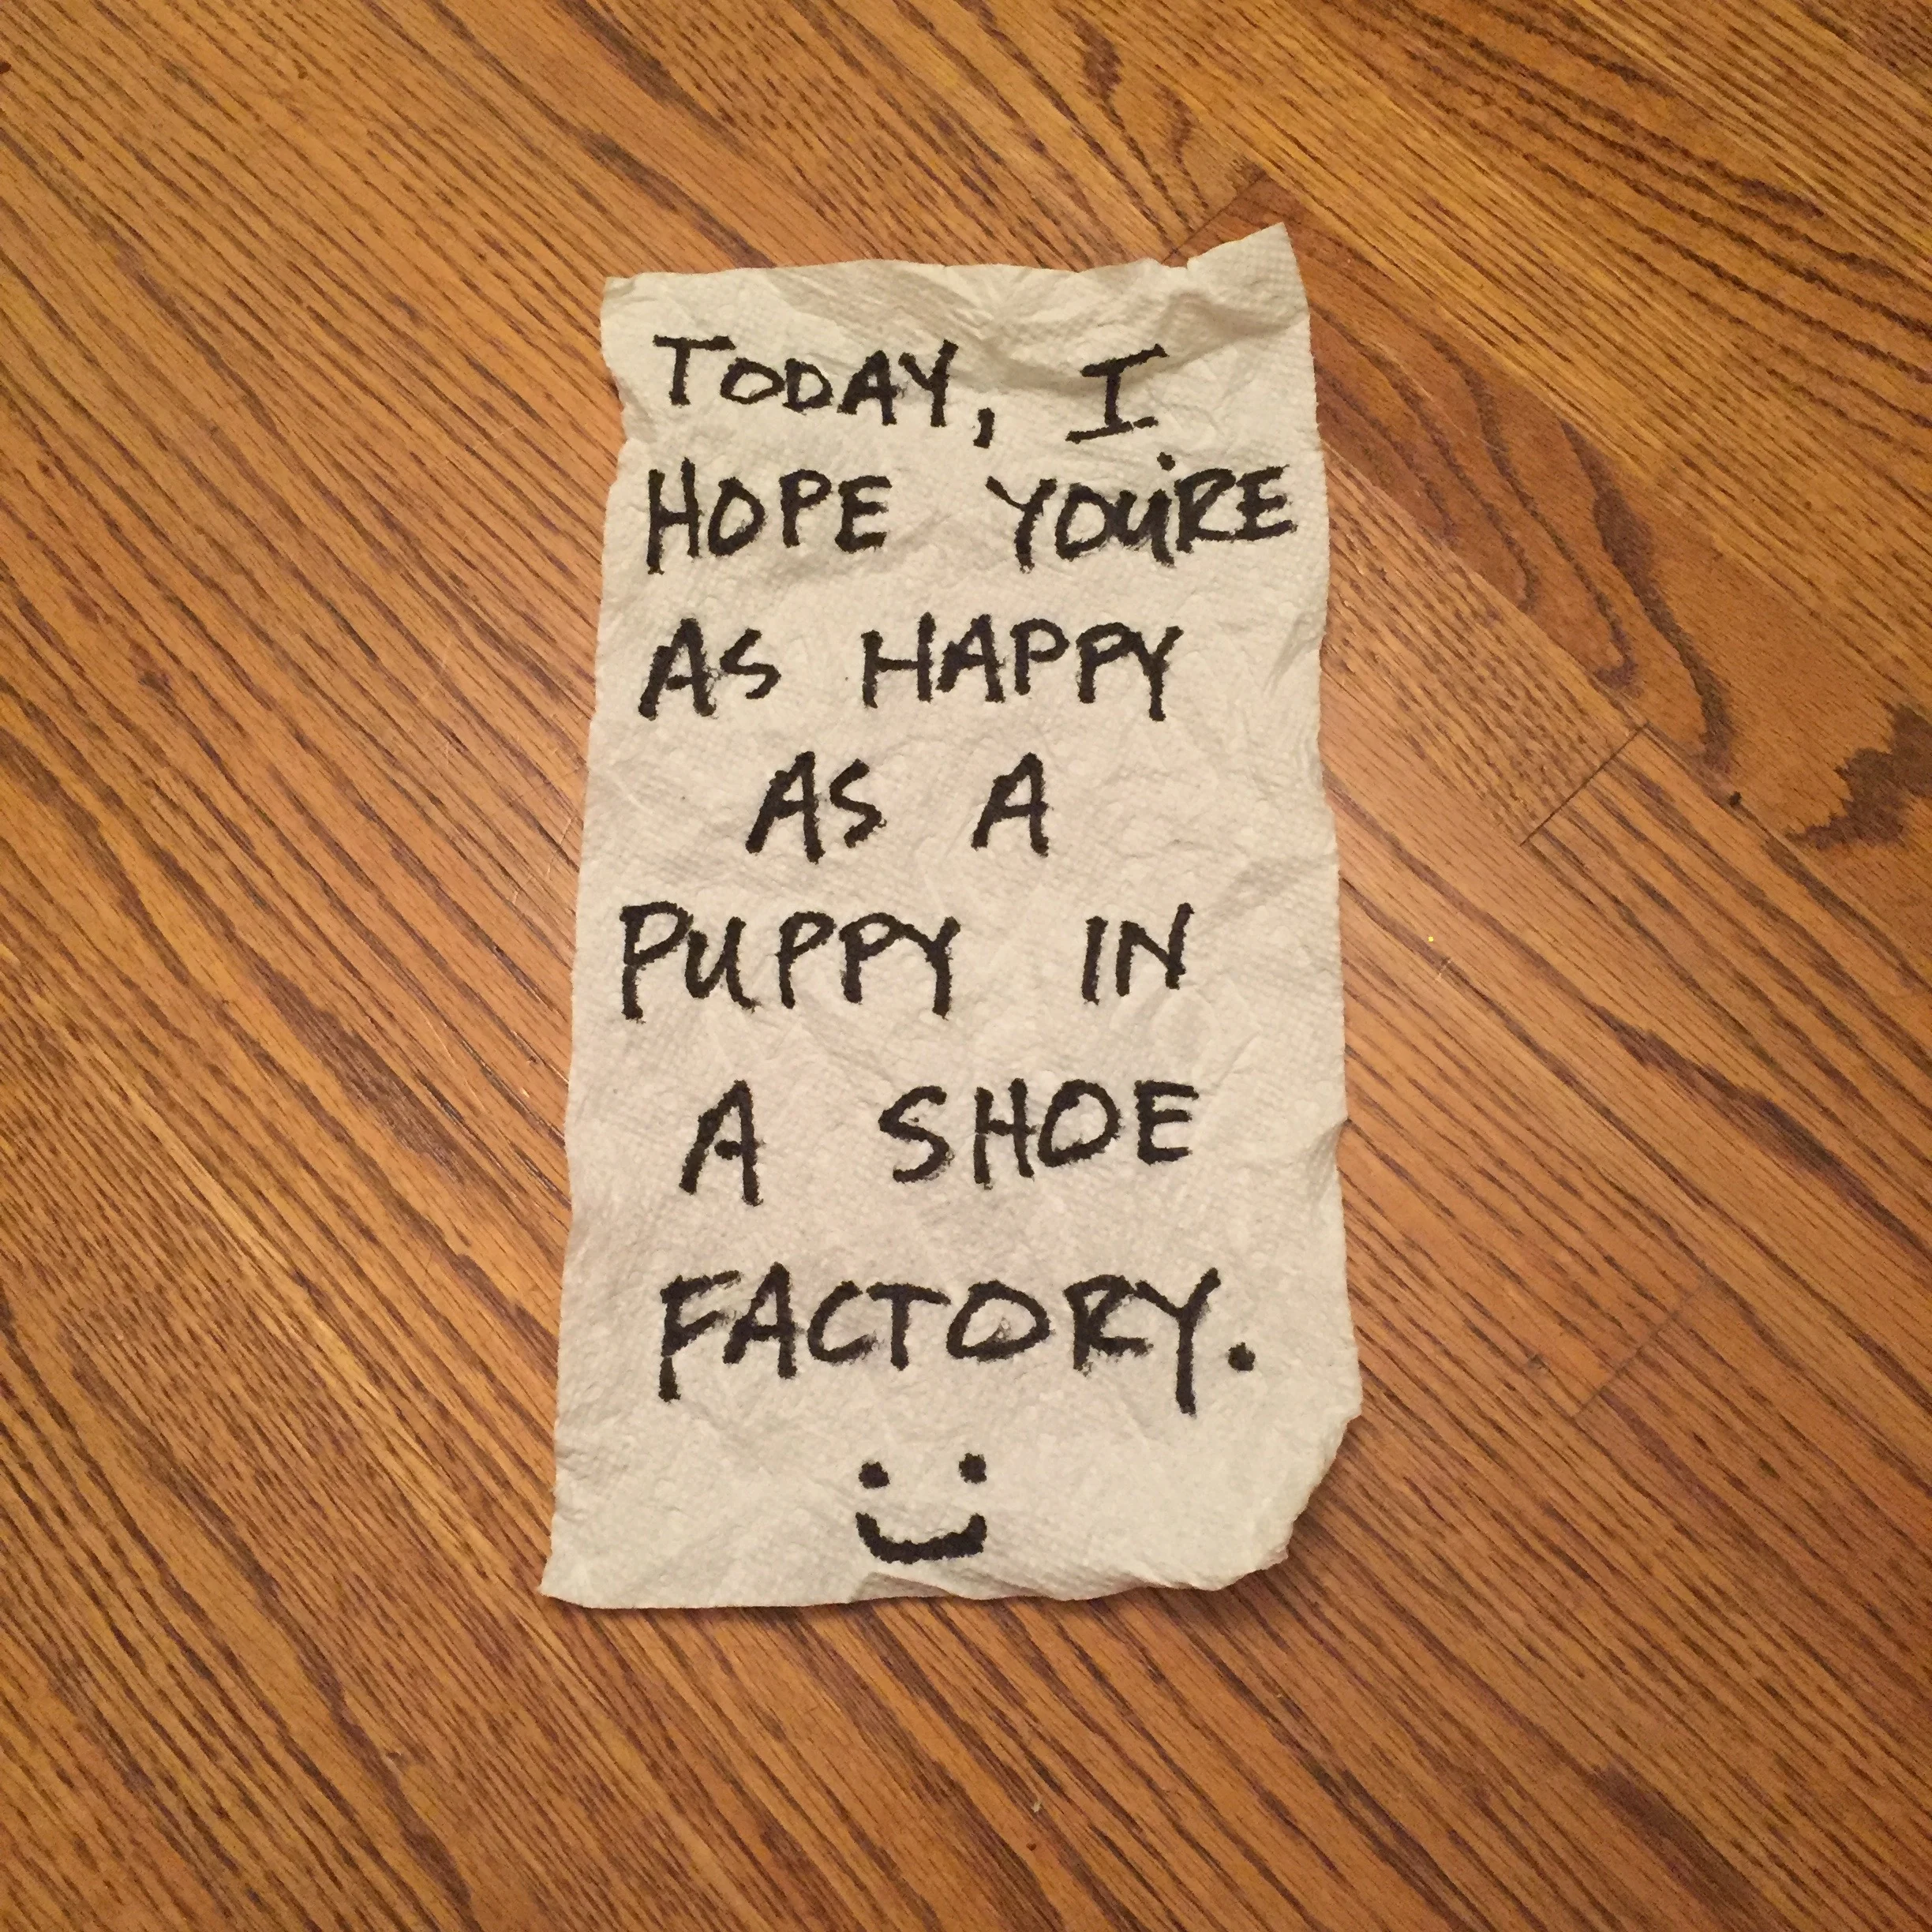 TODAY, I
HOPE YOU'RE
AS HAPPY
AS A
PUPPY IN
A SHOE
FACTORY.